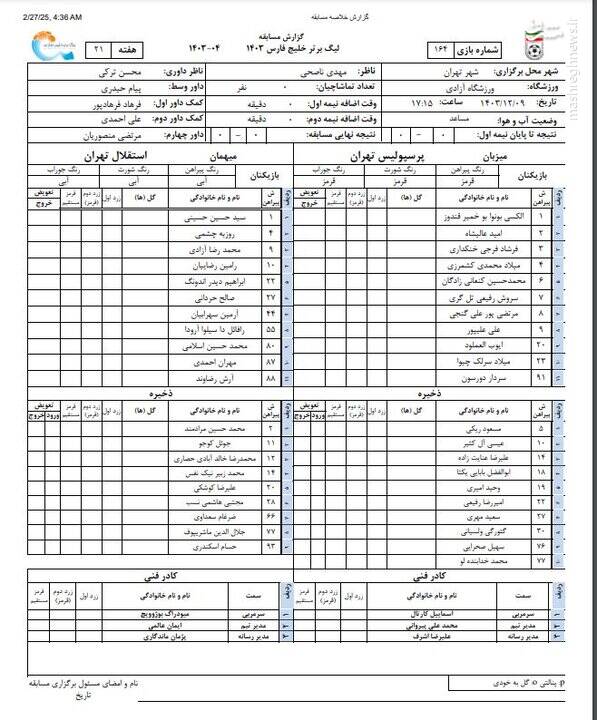 2/27/25, 4:36 AM
گزارش خلاصه مسابقه
mashreghnews.ir
گزارش مسابقه
لیگ برتر خلیج فارس ۱۴۰۳ ۰۴-۱۴۰۳
شماره بازی ۱۶۴
هفته ۲۱
شهر محل برگزاری: شهر تهران
ناظر: مهدی ناصحی
ناظر داوری: محسن ترکی
ورزشگاه: ورزشگاه آزادی
تعداد تماشاچیان: ۰ نفر
داور وسط: پیام حیدری
تاریخ: ۱۴۰۳/۱۲/۰۹ ساعت: ۱۷:۱۵
وقت اضافه نیمه اول: ۰ دقیقه
کمک داور اول: فرهاد فرهادپور
وضعیت آب و هوا: مساعد
وقت اضافه نیمه دوم: ۰ دقیقه
کمک داور دوم: علی احمدی
نتیجه تا پایان نیمه اول: ۰ - ۰
نتیجه نهایی مسابقه: ۰ - ۰
داور چهارم: مرتضی منصوریان
میزبان پرسپولیس تهران
بازیکنان
رنگ پیراهن رنگ شورت رنگ جوراب
قرمز قرمز قرمز
ردیف ش پیراهن نام و نام خانوادگی گل (ها) زرد اول زرد دوم (قرمز) قرمز مستقیم تعویض خروج
۱ الکسی بونوا بو خمیر قندوز
۲ امید عالیشاه
۳ فرشاد فرجی خنکداری
۴ میلاد محمدی کشمرزی
۶ محمدحسین کنعانی زادگان
۷ سروش رفیعی تل گری
۸ مرتضی پور علی گنجی
۹ علی علیپور
۲۰ ایوب العملود
۲۳ میلاد سرلک چیوا
۹۱ سردار دورسون
ذخیره
ردیف ش پیراهن نام و نام خانوادگی گل (ها) زرد اول زرد دوم (قرمز) قرمز مستقیم تعویض ورود خروج
۵ مسعود ریگی
۱۰ عیسی آل کثیر
۱۴ علیرضا عنایت زاده
۱۸ ابوالفضل بابایی یکتا
۱۹ وحید امیری
۲۲ امیررضا رفیعی
۲۷ سعید مهری
۳۰ گئورگی ولسیانی
۷۶ سهیل صحرایی
۷۷ محمد خدابنده لو
کادر فنی
ردیف سمت نام و نام خانوادگی زرد اول زرد دوم (قرمز) قرمز مستقیم
۱ سرمربی اسماییل کارتال
۲ مدیر تیم محمد علی پیروانی
۳ مدیر رسانه علیرضا اشرف
میهمان استقلال تهران
بازیکنان
رنگ پیراهن رنگ شورت رنگ جوراب
آبی آبی آبی
ردیف ش پیراهن نام و نام خانوادگی گل (ها) زرد اول زرد دوم (قرمز) قرمز مستقیم تعویض خروج
۱ سید حسین حسینی
۴ روزبه چشمی
۹ محمد رضا آزادی
۱۰ رامین رضاییان
۲۲ ابراهیم دیدر اندونگ
۲۷ صالح حردانی
۴۴ آرمین سهرابیان
۵۵ رافائل دا سیلوا آرودا
۸۰ محمد حسین اسلامی
۸۷ مهران احمدی
۸۸ آرش رضاوند
ذخیره
ردیف ش پیراهن نام و نام خانوادگی گل (ها) زرد اول زرد دوم (قرمز) قرمز مستقیم تعویض ورود خروج
۲ محمد حسین مرادمند
۱۱ جوئل کوجو
۱۲ محمدرضا خالد آبادی حصاری
۱۴ محمد زبیر نیک نفس
۲۰ علیرضا کوشکی
۲۸ مجتبی هاشمی نسب
۶۶ ضرغام سعداوی
۷۷ جلال الدین ماشریپوف
۹۳ حسام اسکندری
کادر فنی
ردیف سمت نام و نام خانوادگی زرد اول زرد دوم (قرمز) قرمز مستقیم
۱ سرمربی میودراگ بوژوویچ
۲ مدیر تیم ایمان عالمی
۳ مدیر رسانه پژمان ماندگاری
p: پنالتی o: گل به خودی
نام و امضای مسئول برگزاری مسابقه
تاریخ